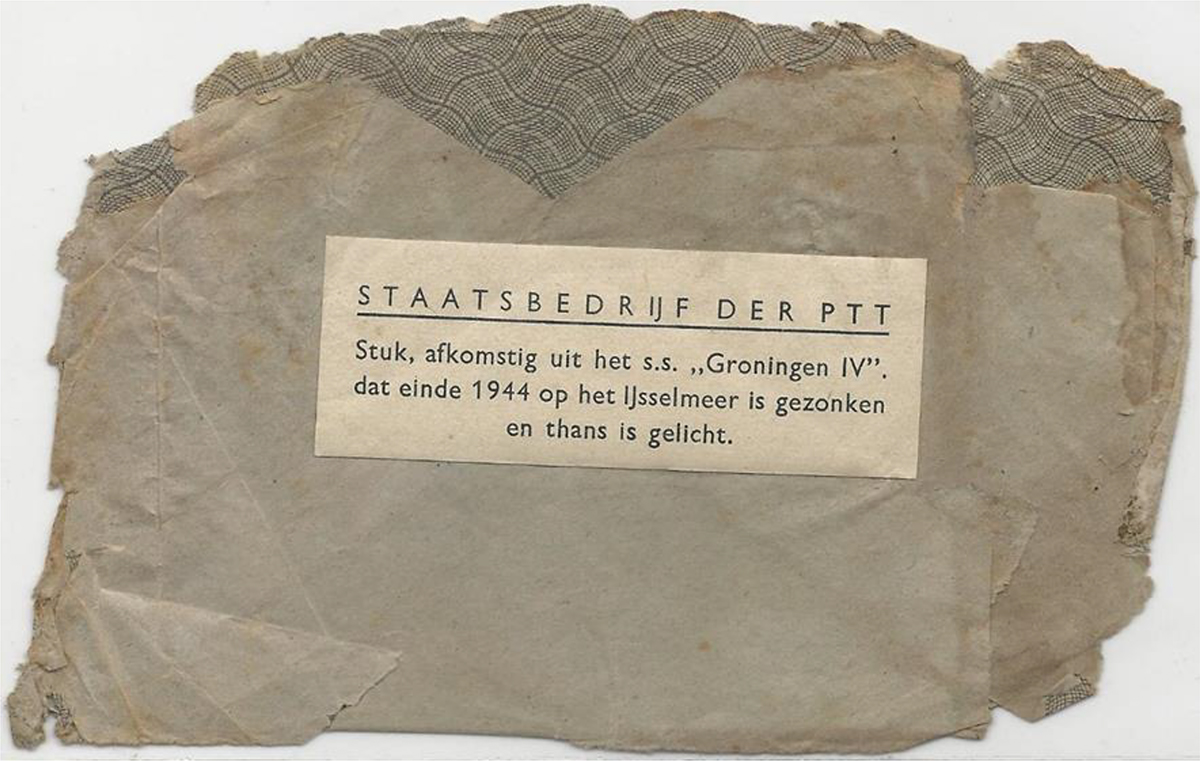 STAATSBEDRIJF DER PTT
Stuk, afkomstig uit het s.s. „Groningen IV”.
dat einde 1944 op het IJsselmeer is gezonken
en thans is gelicht.